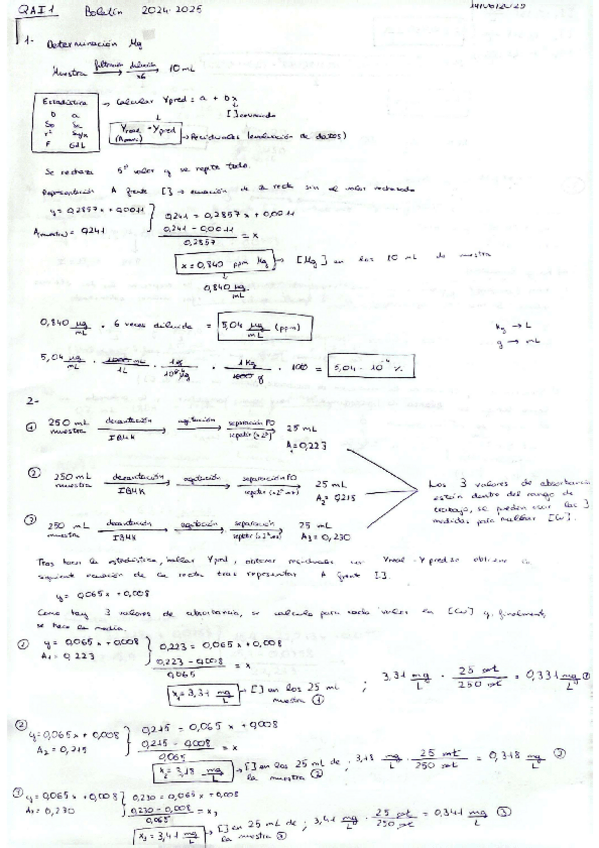 QAI1 Boletín 2024-2025
1- Determinación Mg
Muestra filtración dilución x6 10 mL
Estadística
b a
r²
F GdL
Calcular Ypred = a + bx
[ ] conocida
Yreal - Ypred
→ Residuales (evaluación de datos)
Se rechaza 5º valor y se repite todo.
Representación A frente [ ] → ecuación de la recta sin el valor rechazado
y = 0,2857x + 0,0011
A(muestra) = 0,241
0,241 = 0,2857x + 0,0011
0,241 - 0,0011 / 0,2857 = x
x = 0,840 ppm Mg → [Mg] en los 10 mL de muestra
0,840 µg/mL
0,840 µg/mL · 6 veces diluida = 5,04 µg/mL (ppm)
Kg → L
g → mL
5,04 µg/mL · 1000 mL/1L · 1g/10⁶ µg · 1Kg/1000 g · 100 = 5,04 · 10⁻⁴ %
2-
① 250 mL muestra decantación IBMK agitación separación FO repetir (x2º) 25 mL
A₁ = 0,223
② 250 mL muestra decantación IBMK agitación separación FO 25 mL
A₂ = 0,215
③ 250 mL muestra decantación IBMK agitación separación 25 mL
A₃ = 0,230
Los 3 valores de absorbancia
están dentro del rango de
trabajo, se pueden usar las 3
medidas para hallar [Cu].
Tras hacer la estadística, hallar Ypred, obtener residuales Yreal - Ypred
siguiente ecuación de la recta tras representar A frente [ ].
y = 0,065x + 0,008
Como hay 3 valores de absorbancia, se calcula para cada valor en [Cu] y, finalmente,
se hace la media.
① y = 0,065x + 0,008
A₁ = 0,223
0,223 = 0,065x + 0,008
0,223 - 0,008 / 0,065 = x
x₁ = 3,31 mg/L → [ ] en los 25 mL muestra ① ; 3,31 mg/L · 25 mL/250 mL = 0,331 mg/L ①
② y = 0,065x + 0,008
A₂ = 0,215
0,215 = 0,065x + 0,008
0,215 - 0,008 / 0,065 = x
x₂ = 3,18 mg/L → [ ] en los 25 mL de la muestra ② ; 3,18 mg/L · 25 mL/250 mL = 0,318 mg/L ②
③ y = 0,065x + 0,008
A₃ = 0,230
0,230 = 0,065x + 0,008
0,230 - 0,008 / 0,065 = x₃
x₃ = 3,41 mg/L → [ ] en 25 mL de la muestra ③ ; 3,41 mg/L · 25 mL/250 mL = 0,341 mg/L ③